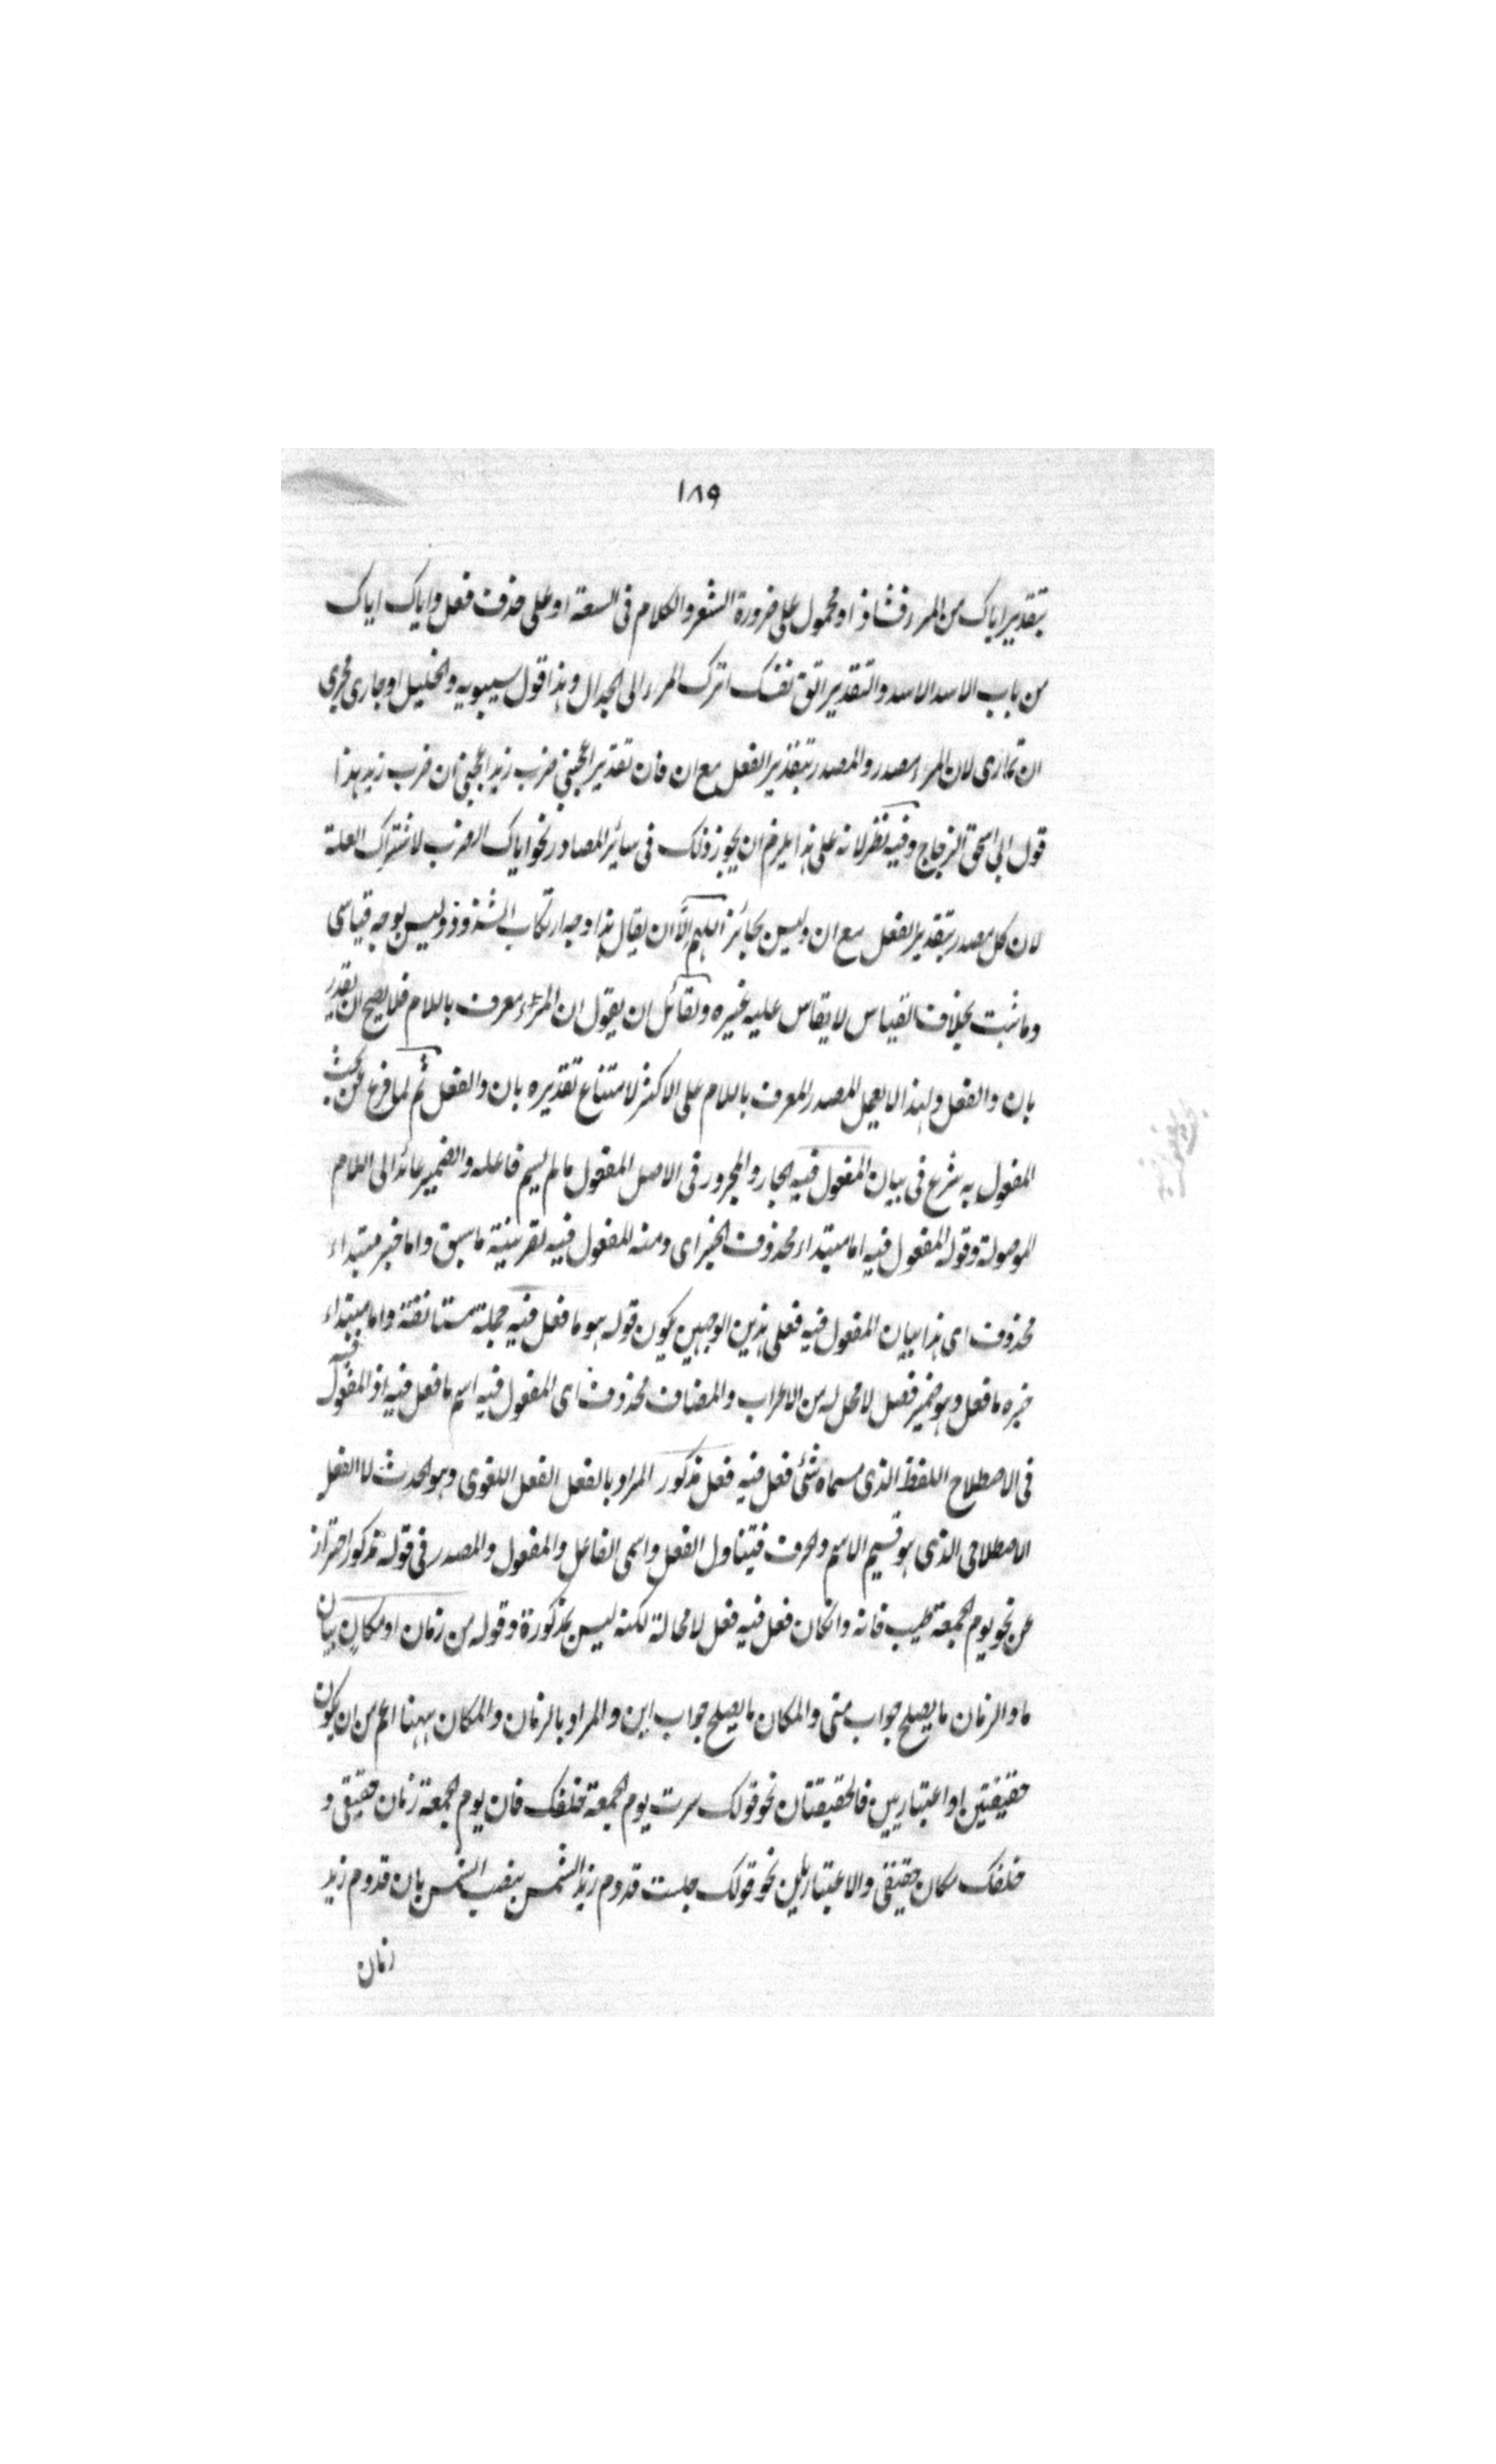 ١٨٩
بتقدير اياك من المراء فشاذ او محمول على ضرورة الشعر والكلام فى السعة او على حذف فعل واياك اياك
من باب الاسد الاسد والتقدير اتق نفسك اترك المراء الى الجدال وهذا قول سيبويه والخليل او جارى مجرى
ان تمارى لان المراء مصدر والمصدر بتقدير الفعل مع ان فان تقدير اعجبنى ضرب زيد اعجبنى ان ضرب زيد هذا
قول ابى اسحق الزجاج وفيه نظر لانه على هذا يلزم ان يجوز ذلك فى سائر المصادر نحو اياك الضرب لاشتراك العلة
لان كل مصدر بتقدير الفعل مع ان وليس بجائز اللهم الا ان يقال هذا وجه ارتكاب الشذوذ وليس بوجه قياسى
وما ثبت بخلاف القياس لا يقاس عليه غيره ولقائل ان يقول ان المراء معرف باللام فلا يصح ان يقدر
بان والفعل ولهذا لا يعمل المصدر المعرف باللام على الاكثر لامتناع تقديره بان والفعل ثم لما فرغ عن بحث
المفعول به شرع فى بيان المفعول فيه الجار والمجرور فى الاصل المفعول ما لم يسم فاعله والضمير عائد الى اللام
الموصولة وقوله المفعول فيه اما مبتداء محذوف الخبر اى ومنه المفعول فيه بقرينة ما سبق واما خبر مبتداء
محذوف اى هذا بيان المفعول فيه فعلى هذين الوجهين يكون قوله هو ما فعل فيه جملة مستانفة واما مبتداء
خبره ما فعل وهو ضمير فصل لا محل له من الاعراب والمضاف محذوف اى المفعول فيه اسم ما فعل فيه اذ المفعول فيه
فى الاصطلاح اللفظ الذى مسماه شئ فعل فيه فعل مذكور المراد بالفعل الفعل اللغوى وهو الحدث لا الفعل
الاصطلاحى الذى هو قسيم الاسم والحرف فيتناول الفعل واسمى الفاعل والمفعول والمصدر فى قوله مذكور احتراز
عن نحو يوم الجمعة طيب فانه وان كان فعل فيه فعل لا محالة لكنه ليس بمذكورة وقوله من زمان او مكان بيان
ما والزمان ما يصلح جواب متى والمكان ما يصلح جواب اين والمراد بالزمان والمكان ههنا اعم من ان يكون
حقيقتين او اعتباريين فالحقيقتان نحو قولك سرت يوم الجمعة خلفك فان يوم الجمعة زمان حقيقى و
خلفك مكان حقيقى والاعتباريين نحو قولك جلست قدوم زيد الشمس بنصب الشمس بان قدوم زيد
زمان